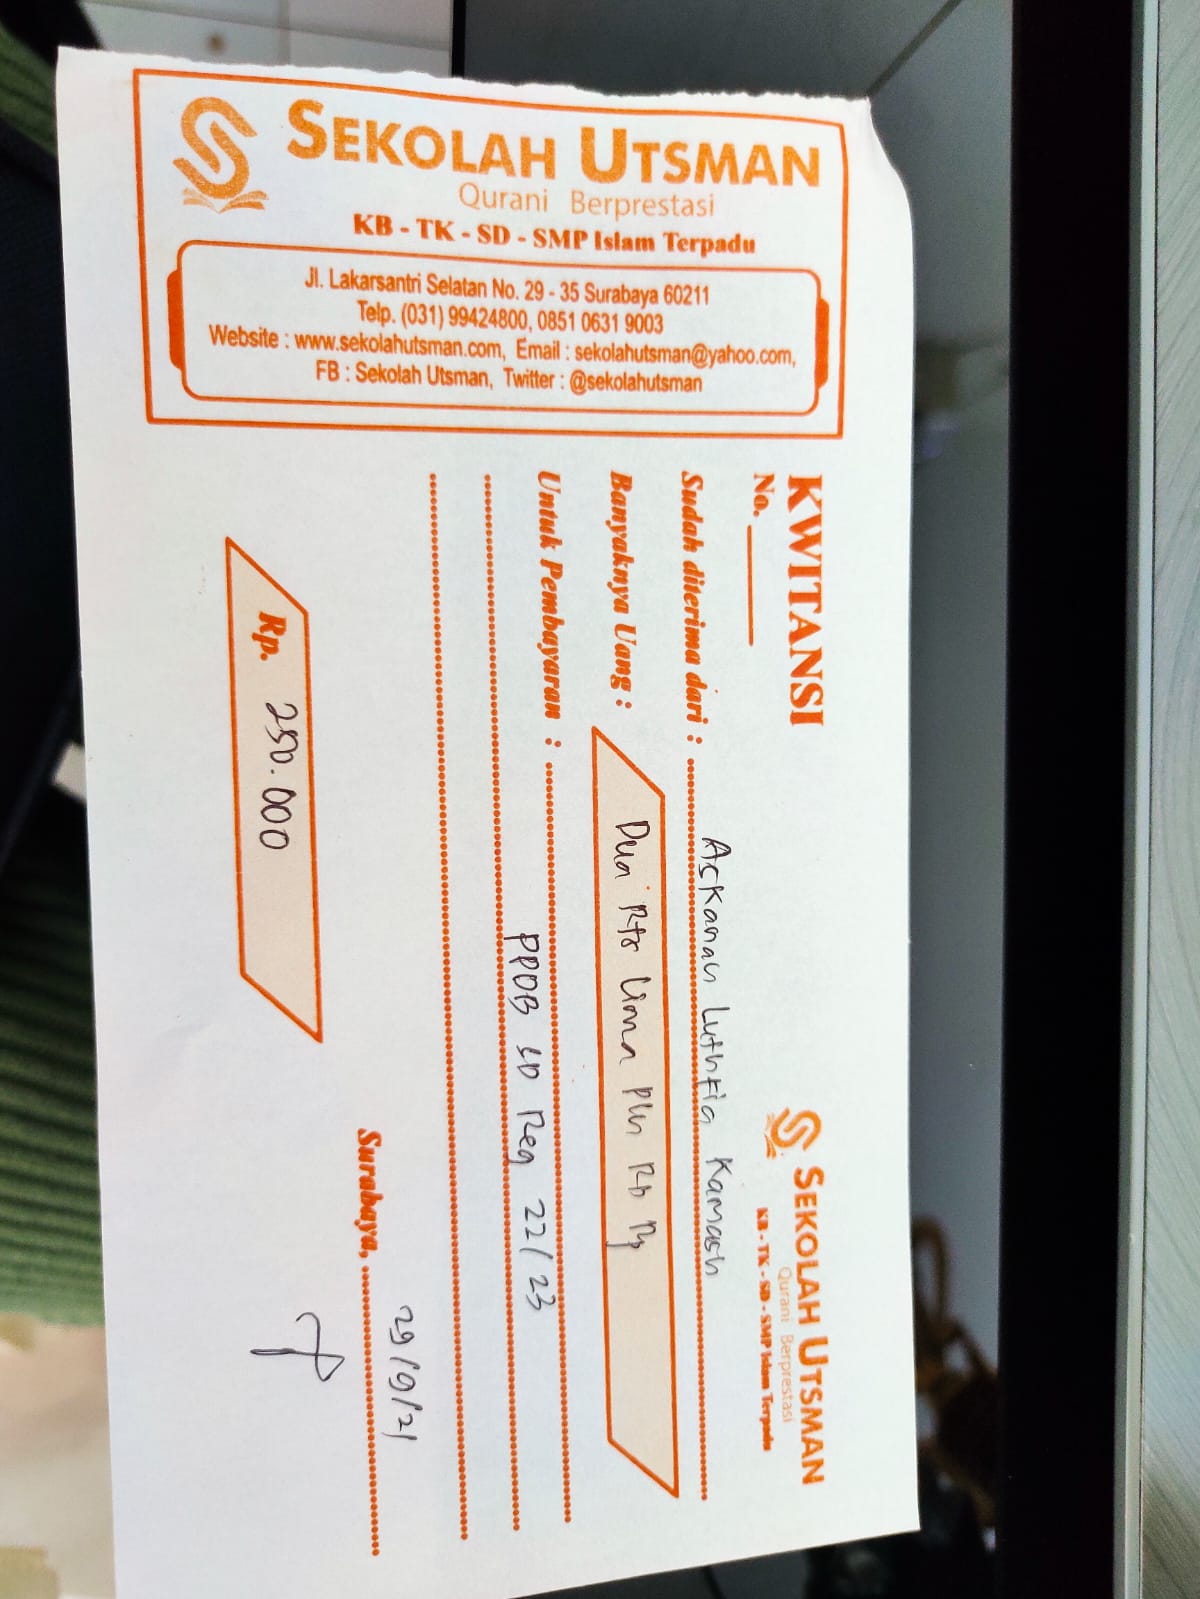 SEKOLAH UTSMAN
Qurani Berprestasi
KB - TK - SD - SMP Islam Terpadu
Jl. Lakarsantri Selatan No. 29 - 35 Surabaya 60211
Telp. (031) 99424800, 0851 0631 9003
Website : www.sekolahutsman.com, Email : sekolahutsman@yahoo.com,
FB : Sekolah Utsman, Twitter : @sekolahutsman
KWITANSI
No.
SEKOLAH UTSMAN
Qurani Berprestasi
KB - TK - SD - SMP Islam Terpadu
Sudah diterima dari : Askanah Luthfia Kamash
Banyaknya Uang : Dua Rts Lima Plh Rb Rp
Untuk Pembayaran : PPDB SD Reg 22/23
Rp. 250.000
Surabaya, 29/9/21